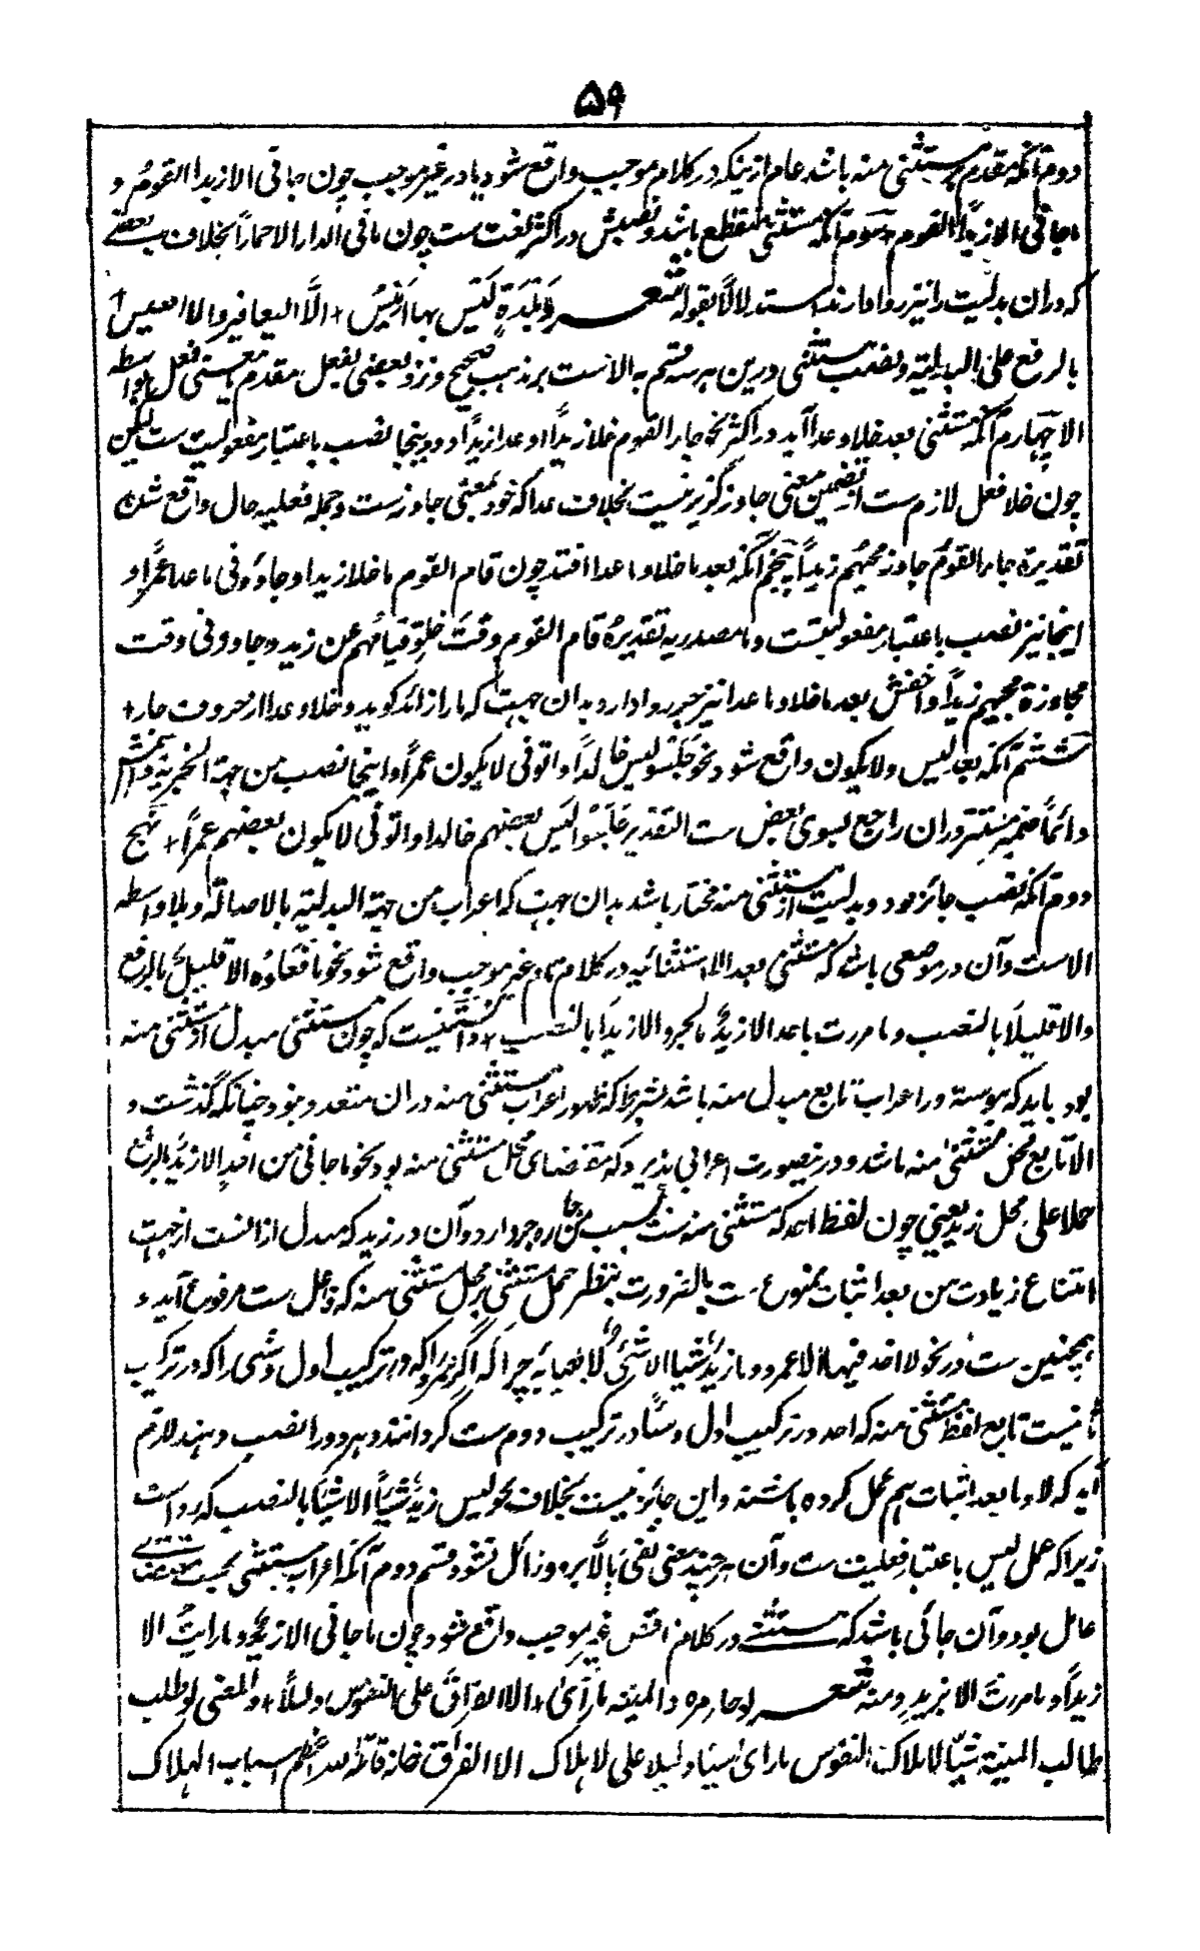 ۵۹
دوم آنکه مقدم بر مستثنی منه باشد عام ازینکه در کلام موجب واقع شود یا در غیر موجب چون جاءنی الا زیدا القومُ و
ما جاءنی الا زیداً القوم + سوم آنکه مستثنی منقطع باشد و نصبش در اکثر لغت ست چون ما فی الدار الا حماراً بخلاف بعضے
که دران بدلیت را نیز روا دارند استدلالاً بقوله شعر وَبَلْدَةٍ لَیْسَ بها اَنِیْسُ + الَّا الیعافیر والا العیس +
بالرفع علی البدلیة و نصب مستثنی درین هر سه قسم به الاست بر مذهب صحیح و نزد بعضی بفعل مقدم یا معنی فعل بواسطه
الا چهارم آنکه مستثنی بعد خلا و عدا آید در اکثر نحو جاء القوم خلا زیداً او عدا زیداً و درینجا نصب باعتبار مفعولیت ست لیکن
چون خلا فعل لازم ست از تضمین معنی جاوز گزیر نیست بخلاف عدا که خود بمعنی جاوز ست و جمله فعلیه حال واقع شده
تقدیره جاء القوم جاوز مجیئهم زیداً پنجم آنکه بعد ما خلا و ما عدا افتد چون قام القوم ما خلا زیدا و جاؤونی ما عدا عمراً و
اینجا نیز نصب باعتبار مفعولیتست و ما مصدریه تقدیره قام القوم وقتَ خلوّ قیامهم عن زید و جاؤونی وقت
مجاوزة مجیئهم زیداً و اخفش بعد ما خلا و ما عدا نیز جر روا دارد بدان جهت که ما را زائد گوید و خلا و عدا از حروف جار +
ششم آنکه بعد لیس و لا یکون واقع شود نحو جلسوا لیس خالداً و اتونی لا یکون عمراً و اینجا نصب من جهة الخبریة و اسمش
دائماً ضمیر مستتر دران راجع بسوی بعض ست التقدیر جَلَسُوْا لَیس بعضهم خالدا و اتونی لا یکون بعضهم عمراً + نهج
دوم آنکه نصب جائز بود و بدلیت از مستثنی منه مختار باشد بدان جهت که اعراب من جهة البدلیة بالاصالة و بلا واسطه
الاست و آن در موضعی باشد که مستثنی بعد الا استثنائیه در کلام تام غیر موجب واقع شود نحو ما فَعَلوُه الا قلیلٌ بالرفع
والا قلیلاً بالنصب و ما مررت باحد الا زیدٍ بالجر و الا زیداً بالنصب + دانستنیست که چون مستثنی مبدل از مستثنی منه
بود باید که پیوسته در اعراب تابع مبدل منه باشد بشرطیکه ظهور اعراب مستثنی منه دران متعذر نبود چنانکه گذشت و
الا تابع محل مستثنیٰ منه باشد و درینصورت اعرابی پذیرد که مقتضای محل مستثنی منه بود نحو ما جاءنی من احدٍ الا زیدٌ بالرفع
حملا علی محل زید یعنی چون لفظ احد که مستثنی منه ست بسبب من جاره جر دارد و آن در زید که مبدل ازانست از جهت
امتناع زیادت من بعد اثبات ممنوع ست بالضرورت بنظر حمل مستثنی بر محل مستثنی منه که فاعل ست مرفوع آید و
همچنین ست در نحو لا احد فیها الا عمرو و ما زیدٌ شیا الا شئٌ لا یعبأ به چرا که اگر عمرو را که در ترکیب اول و شی را که در ترکیب
ثانیست تابع لفظ مستثنی منه که احد در ترکیب اول و شیئا در ترکیب دوم ست گردانند و هر دو را نصب دهند لازم
آید که لا و ما بعد اثبات هم عمل کرده باشند و این جائز نیست بخلاف نحو لیس زیدٌ شیئاً الا شیئاً بالنصب که رواست
زیرا که عمل لیس باعتبار فعلیت ست و آن هر چند معنی نفی بالّا برود زائل نشود قسم دوم آنکه اعراب مستثنی بحسب مقتضائے
عامل بود و آن جائی باشد که مستثنے در کلام ناقص غیر موجب واقع شود چون ما جاءنی الا زیدٌ و ما رایتُ الا
زیداً و ما مررتُ الا بزیدٍ و منه شعر لو حار مرتاد المنیة ما رأی + الا الفراقَ علی النفوس دلیلاً + و المعنی لو طلب
طالب المنیة شیاً لاهلاک النفوس ما رای شیئا دلیلا علی لاهلاک الا الفراق خانه اعظم اسباب الهلاک